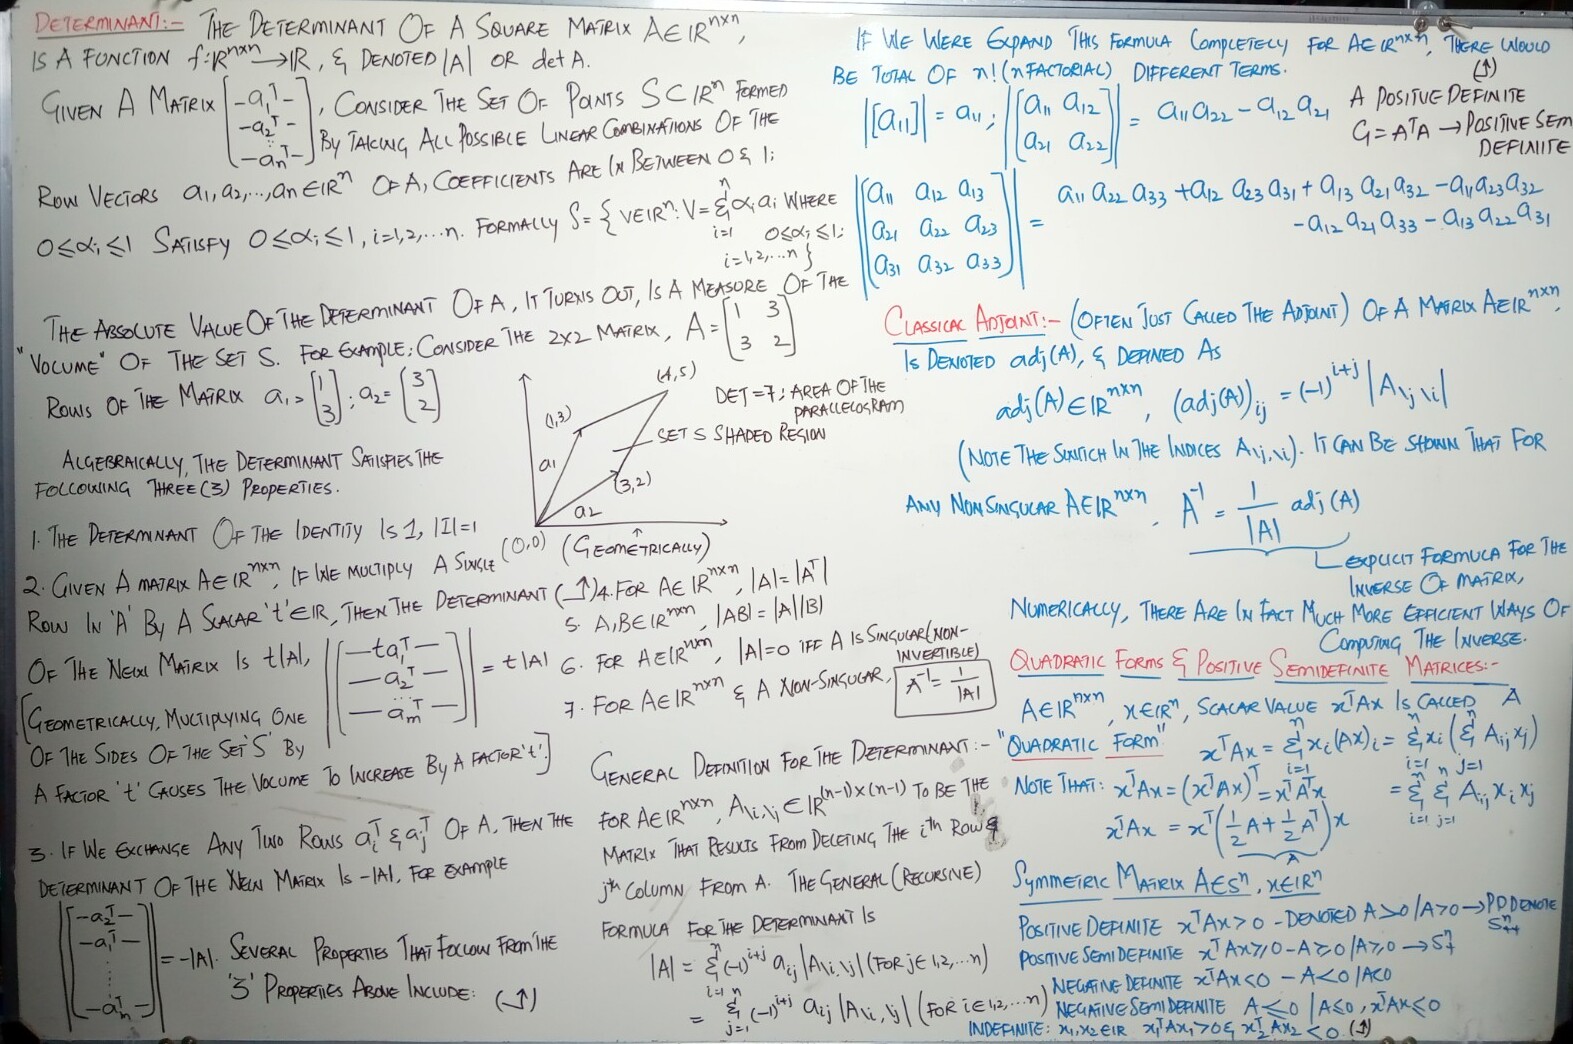 DETERMINANT:- THE DETERMINANT OF A SQUARE MATRIX A∈ℝⁿˣⁿ,
IS A FUNCTION f:ℝⁿˣⁿ→ℝ, & DENOTED |A| OR det A.
GIVEN A MATRIX [-a₁ᵀ- -a₂ᵀ- ⋮ -aₙᵀ-], CONSIDER THE SET OF POINTS S⊂ℝⁿ FORMED
BY TAKING ALL POSSIBLE LINEAR COMBINATIONS OF THE
ROW VECTORS a₁,a₂,...,aₙ∈ℝⁿ OF A, COEFFICIENTS ARE IN BETWEEN 0 & 1;
0≤αᵢ≤1 SATISFY 0≤αᵢ≤1, i=1,2,...n. FORMALLY S = { V∈ℝⁿ: V = Σⁿᵢ₌₁ αᵢaᵢ WHERE
0≤αᵢ≤1;
i=1,2,...n }
THE ABSOLUTE VALUE OF THE DETERMINANT OF A, IT TURNS OUT, IS A MEASURE OF THE
"VOLUME" OF THE SET S. FOR EXAMPLE; CONSIDER THE 2x2 MATRIX, A = [1 3; 3 2]
ROWS OF THE MATRIX a₁ = [1 3]; a₂ = [3 2]
(4,5)
(1,3)
DET = 7; AREA OF THE
PARALLELOGRAM
SET S SHADED REGION
a₁
(3,2)
a₂
(0,0) (GEOMETRICALLY)
ALGEBRAICALLY, THE DETERMINANT SATISFIES THE
FOLLOWING THREE(3) PROPERTIES.
1. THE DETERMINANT OF THE IDENTITY IS 1, |I|=1
2. GIVEN A MATRIX A∈ℝⁿˣⁿ, IF WE MULTIPLY A SINGLE
ROW IN 'A' BY A SCALAR 't'∈ℝ, THEN THE DETERMINANT
OF THE NEW MATRIX IS t|A|, |-ta₁ᵀ- -a₂ᵀ- ... -aₘᵀ-| = t|A|
[GEOMETRICALLY, MULTIPLYING ONE
OF THE SIDES OF THE SET 'S' BY
A FACTOR 't' CAUSES THE VOLUME TO INCREASE BY A FACTOR 't'.]
3. IF WE EXCHANGE ANY TWO ROWS aᵢᵀ & aⱼᵀ OF A, THEN THE
DETERMINANT OF THE NEW MATRIX IS -|A|, FOR EXAMPLE
|[-a₂ᵀ- -a₁ᵀ- ⋮ -aₘᵀ-]| = -|A|. SEVERAL PROPERTIES THAT FOLLOW FROM THE
'3' PROPERTIES ABOVE INCLUDE: (↑)
(↑) 4. FOR A∈ℝⁿˣⁿ, |A|=|Aᵀ|
5. A,B∈ℝⁿˣⁿ, |AB| = |A||B|
6. FOR A∈ℝⁿˣⁿ, |A|=0 IFF A IS SINGULAR(NON-
INVERTIBLE)
7. FOR A∈ℝⁿˣⁿ & A NON-SINGULAR, A⁻¹ = 1/|A|
GENERAL DEFINITION FOR THE DETERMINANT:-
FOR A∈ℝⁿˣⁿ, A\i,\j ∈ ℝ⁽ⁿ⁻¹⁾ˣ⁽ⁿ⁻¹⁾ TO BE THE
MATRIX THAT RESULTS FROM DELETING THE iᵗʰ ROW &
jᵗʰ COLUMN FROM A. THE GENERAL (RECURSIVE)
FORMULA FOR THE DETERMINANT IS
|A| = Σⁿᵢ₌₁ (-1)ⁱ⁺ʲ aᵢⱼ |A\i,\j| (FOR j∈1,2,...n)
= Σⁿⱼ₌₁ (-1)ⁱ⁺ʲ aᵢⱼ |A\i,\j| (FOR i∈1,2,...n)
IF WE WERE EXPAND THIS FORMULA COMPLETELY FOR A∈ℝⁿˣⁿ, THERE WOULD
BE TOTAL OF n! (n FACTORIAL) DIFFERENT TERMS. (↑)
|[a₁₁]| = a₁₁; |[a₁₁ a₁₂; a₂₁ a₂₂]| = a₁₁a₂₂ - a₁₂a₂₁
A POSITIVE DEFINITE
G=AᵀA → POSITIVE SEM
DEFINITE
|[a₁₁ a₁₂ a₁₃; a₂₁ a₂₂ a₂₃; a₃₁ a₃₂ a₃₃]| = a₁₁a₂₂a₃₃ + a₁₂a₂₃a₃₁ + a₁₃a₂₁a₃₂ - a₁₁a₂₃a₃₂
- a₁₂a₂₁a₃₃ - a₁₃a₂₂a₃₁
CLASSICAL ADJOINT:- (OFTEN JUST CALLED THE ADJOINT) OF A MATRIX A∈ℝⁿˣⁿ,
IS DENOTED adj(A), & DEFINED AS
adj(A)∈ℝⁿˣⁿ, (adj(A))ᵢⱼ = (-1)ⁱ⁺ʲ |A\j\i|
(NOTE THE SWITCH IN THE INDICES A\j,\i). IT CAN BE SHOWN THAT FOR
ANY NONSINGULAR A∈ℝⁿˣⁿ, A⁻¹ = 1/|A| adj(A)
EXPLICIT FORMULA FOR THE
INVERSE OF MATRIX,
NUMERICALLY, THERE ARE IN FACT MUCH MORE EFFICIENT WAYS OF
COMPUTING THE INVERSE.
QUADRATIC FORMS & POSITIVE SEMIDEFINITE MATRICES:-
A∈ℝⁿˣⁿ, x∈ℝⁿ, SCALAR VALUE xᵀAx IS CALLED A
"QUADRATIC FORM" xᵀAx = Σⁿᵢ₌₁ xᵢ(Ax)ᵢ = Σⁿᵢ₌₁ xᵢ(Σⁿⱼ₌₁ Aᵢⱼxⱼ)
NOTE THAT: xᵀAx = (xᵀAx)ᵀ = xᵀAᵀx = Σⁿᵢ₌₁ Σⁿⱼ₌₁ Aᵢⱼxᵢxⱼ
xᵀAx = xᵀ(½A + ½Aᵀ)x
A
SYMMETRIC MATRIX A∈Sⁿ, x∈ℝⁿ
POSITIVE DEFINITE xᵀAx>0 - DENOTED A≻0 | A>0 → PD DENOTE
Sⁿ₊₊
POSITIVE SEMI DEFINITE xᵀAx≥0 - A⪰0 | A≥0 → Sⁿ₊
NEGATIVE DEFINITE xᵀAx<0 - A≺0 | A<0
NEGATIVE SEMI DEFINITE A⪯0 | A≤0, xᵀAx≤0
INDEFINITE: x₁,x₂∈ℝ x₁ᵀAx₁>0 & x₂ᵀAx₂<0 (↑)